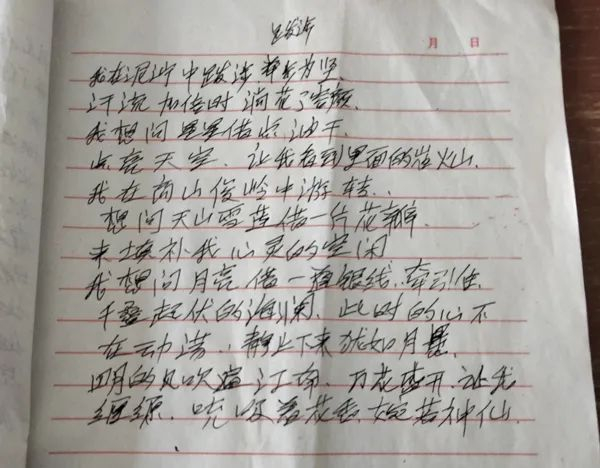 月 日
我在泥泞中跋涉
汗流加倍时淌花了
我想问星星借点油干
点亮天空、让我看到里面的岩火山
我在高山俊岭中游转、
想问天山雪莲借一片花瓣
来填补我心灵的空闲
我想问月亮借一银线、牵引住
千叠起伏的海澜、此时的心不
在动荡、静止下来犹如月
明的风吹江南、万花盛开、让我
缠绵、吮吸着花香、宛若神仙